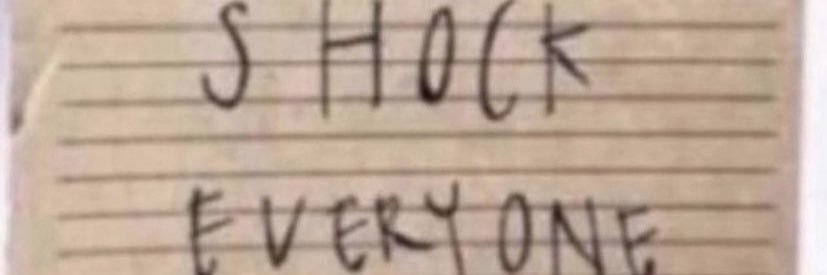 SHOCK
EVERYONE